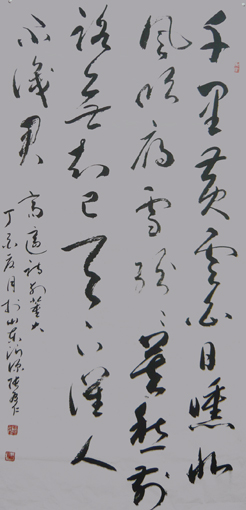 千里黄云白日曛北
风吹雁雪纷纷莫愁前
路无知己天下谁人
不识君
高适诗别董大
丁亥夏月于山东济源